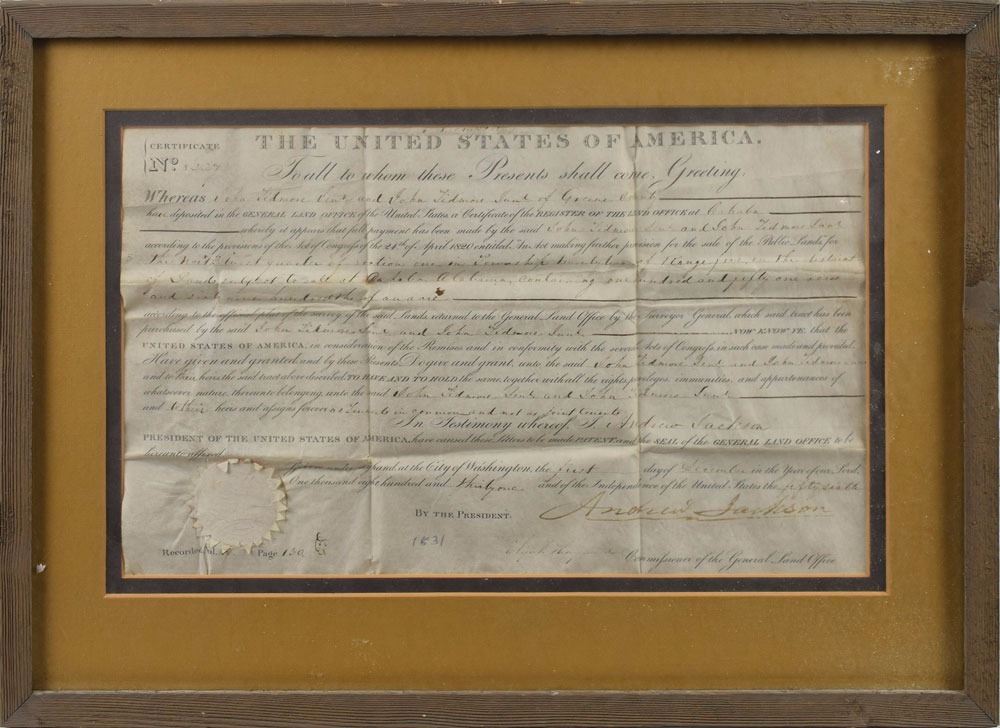 THE UNITED STATES OF AMERICA.
CERTIFICATE
No.
To all to whom these Presents shall come, Greeting:
Whereas John Tidmore Senr. and John Tidmore Junr. of Greene County
have deposited in the GENERAL LAND OFFICE of the United States, a Certificate of the REGISTER OF THE LAND OFFICE at Cahaba
whereby it appears that full payment has been made by the said John Tidmore Senr. and John Tidmore Junr.
according to the provisions of the Act of Congress of the 24th of April 1820 entitled An Act making further provision for the sale of the Public Lands, for
the quarter of section one in Township twenty two of Range five in the district
of Lands subject to sale at Cahaba Alabama, containing one hundred and fifty one acres
and sixty hundredths of an acre
according to the official plat of the survey of the said Lands, returned to the General Land Office by the Surveyor General, which said tract has been
purchased by the said John Tidmore Senr. and John Tidmore Junr. NOW KNOW YE, that the
UNITED STATES OF AMERICA, in consideration of the Premises and in conformity with the several Acts of Congress in such case made and provided,
Have given and granted, and by these Presents Do give and grant, unto the said John Tidmore Senr. and John Tidmore Junr.
and to their heirs the said tract above described, TO HAVE AND TO HOLD the same, together with all the rights, privileges, immunities, and appurtenances of
whatsoever nature, thereunto belonging, unto the said John Tidmore Senr. and John Tidmore Junr.
and to their heirs and assigns forever as tenants in common and not as joint tenants
In Testimony whereof, I, Andrew Jackson
PRESIDENT OF THE UNITED STATES OF AMERICA, have caused these Letters to be made PATENT, and the SEAL of the GENERAL LAND OFFICE to be
hereunto affixed.
Given under my hand, at the City of Washington, the first day of December in the Year of our Lord,
One thousand eight hundred and thirty one and of the Independence of the United States the fifty sixth
BY THE PRESIDENT. Andrew Jackson
1831
Recorded Vol. Page 130
Commissioner of the General Land Office